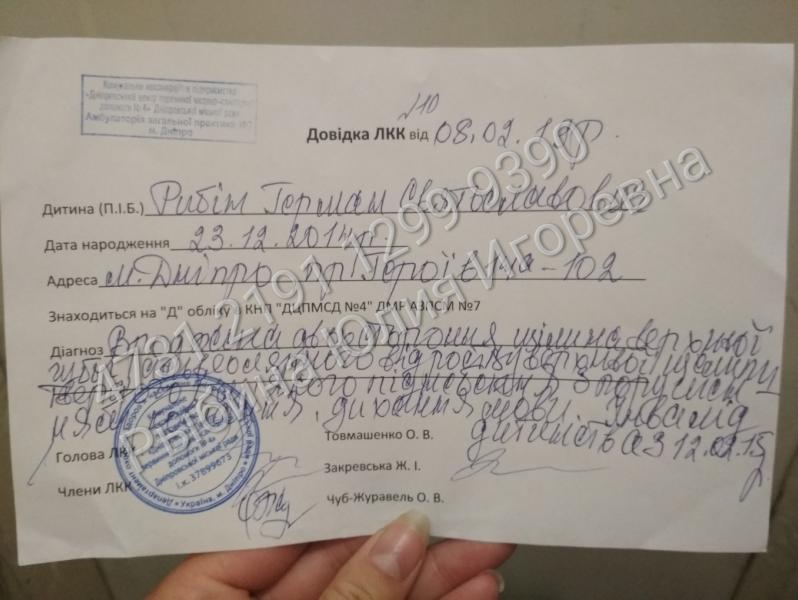 Комунальне некомерційне підприємство
«Дніпровський центр первинної медико-санітарної
допомоги №4» Дніпровської міської ради
Амбулаторія загальної практики №7
м. Дніпро
№10
Довідка ЛКК від 08.02.19р.
Дитина (П.І.Б.) Рибін Герман Святославович
Дата народження 23.12.2014р
Адреса м. Дніпро пр Героїв 14а-102
Знаходиться на "Д" обліку в КНП "ДЦПМСД №4" ДМР АЗПСМ №7
Діагноз Вроджена двостороння щілина верхньої
губи, альвеолярного відростку верхньої щелепи
твердого піднебіння з порушен-
ням дихання, мови. Інвалід
дитинства з 12.02.15р
Голова ЛКК Товмашенко О. В.
Закревська Ж. І.
Члени ЛКК
Чуб-Журавель О. В.
допомоги №4»
Дніпровської міської ради
і.к. 37899673
Україна, м. Дніпро
4731 2191 1299 9390
Рыбина Юлия Игоревна